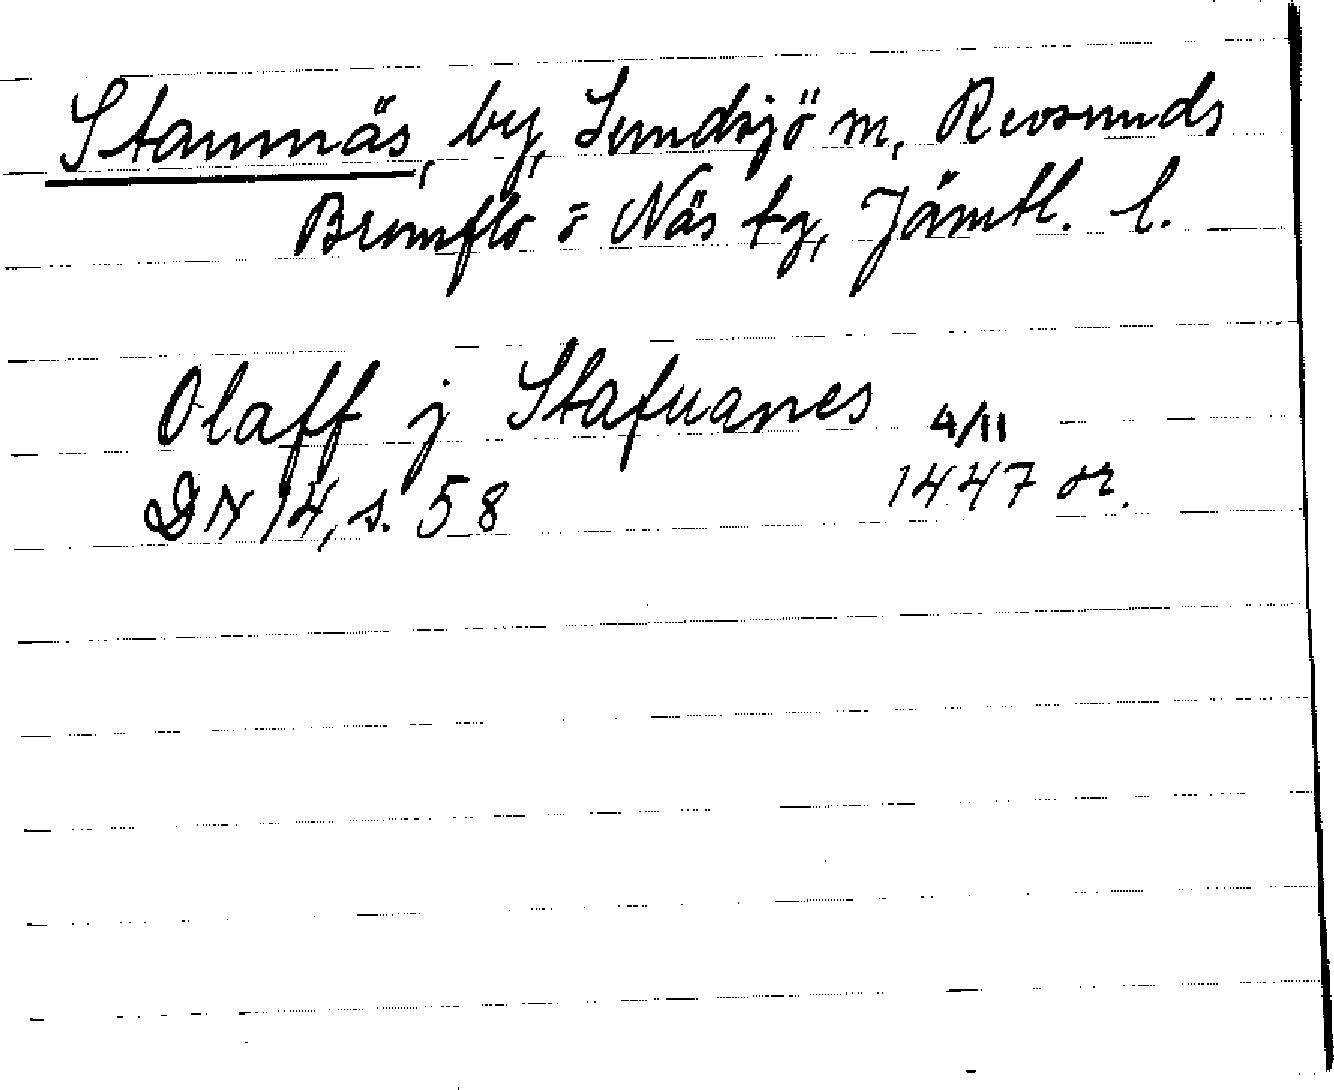 Stamnäs, by, Sundsjö sn, Revsunds
Brunflo o Näs tg, Jämtl. l.
Olaff j Stafuanes 4/11
DN 14, s. 58 1447 or.